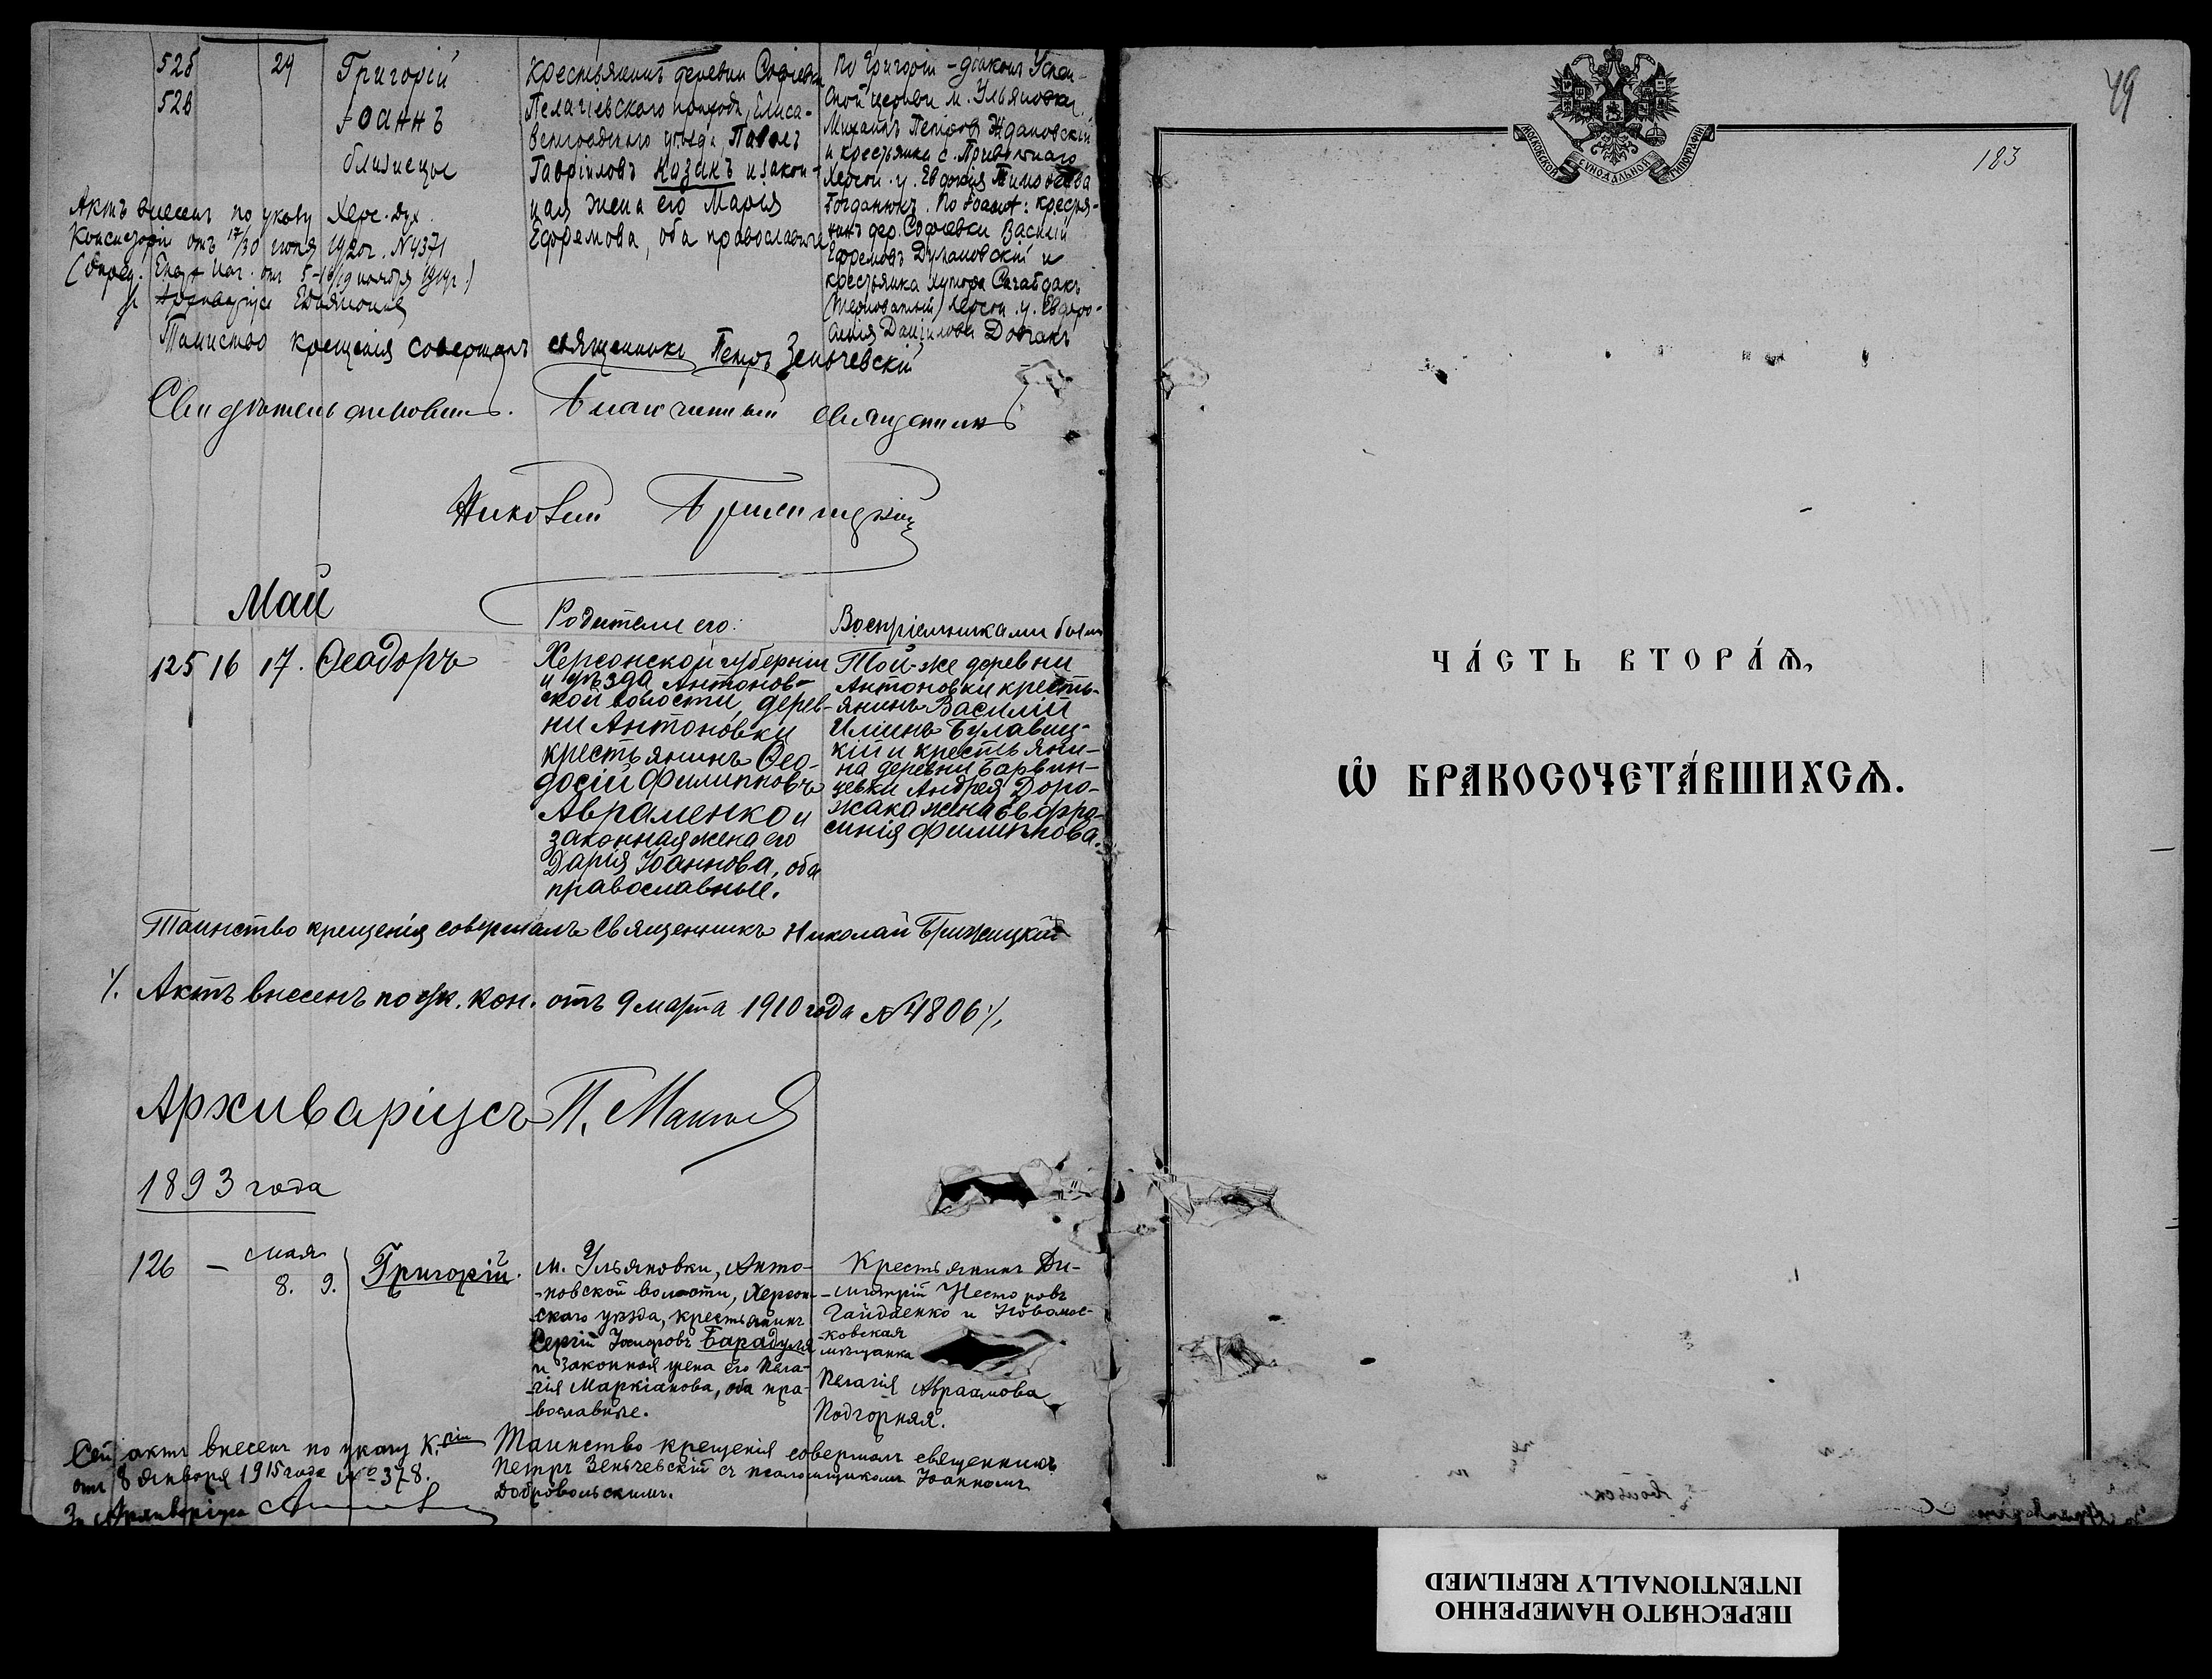 52б 24 Григорій
52в Іоаннъ
близнецы
Крестьянинъ деревни Софіевки
Пелагіевскаго прихода, Елиса-
ветградскаго уѣзда, Павелъ
Гавріиловъ Казакъ и закон-
ная жена его Марія
Ефремова, оба православные
По Григоріи - діаконъ Успен-
ской церкви м. Ульяновки
Михаилъ Петровъ Ждановскій
и крестьянка с. Привѣтнаго
Херсон. у. Евдокія Тимофеева
Богданюкъ. По Іоаннѣ: крестья-
нинъ дер. Софіевки Василій
Ефремовъ и
крестьянка хутора Сагайдакъ
Херсон. у. Евфро-
синія Даніилова Довгань
Актъ внесенъ по указу Херс. Дух.
Консисторіи отъ 17/30 іюня 1920г. №4371
(опред. Епарх. Нач. от 5-19 ноября 1919г.)
Таинство крещенія совершалъ священникъ Петръ Зеньчевскій
священникъ
Николай Бржицкій
Май
Родители его:
Воспріемниками были
125 16 17. Ѳеодоръ
Херсонской губерніи
и уѣзда Антонов-
ской волости, дерев-
ни Антоновки
крестьянинъ Ѳео-
досій Филипповъ
Авраменко и
законная жена его
Дарія Іоаннова, оба
православные.
Той-же деревни
Антоновки кресть-
янинъ Василій
Илиинъ Булавиц-
кій и крестьяни-
на деревни Барвин-
цевки Андрея Доро-
жака жена Евфро-
синія Филиппова.
Таинство крещенія совершалъ Священникъ Николай Бржицкій
٪ Актъ внесенъ по ук. кон. отъ 9 марта 1910 года №4806 ٪
Архиваріусъ П.
1893 года
126 – мая
8. 9. Григорій.
м. Ульяновки, Анто-
-новской волости, Херсон-
скаго уѣзда, крестьянинъ
Сергій Іосифовъ Барадуля
и законная жена его Пела-
-гія Маркіанова, оба пра-
-вославные.
Крестьянинъ Ди-
-митрій Несторовъ
Гайдаенко и Новомос-
-ковская
мѣщанка
Пелагія Авраамова
Подгорняя.
Сей актъ внесенъ по указу К-ріи
отъ 8 Января 1915 года № 378.
За Архиваріуса
Таинство крещенія совершалъ священникъ
Петръ Зеньчевскій съ псаломщикомъ Іоанномъ
Добровольскимъ.
49
183
МОСКОВСКОЙ СѴНОДАЛЬНОЙ ТИПОГРАФІИ
ЧА́СТЬ ВТОРА́Ѧ,
Ѡ҆ БРАКОСОЧЕТА́ВШИХСѦ.
ПЕРЕСНЯТО НАМЕРЕННО
INTENTIONALLY REFILMED